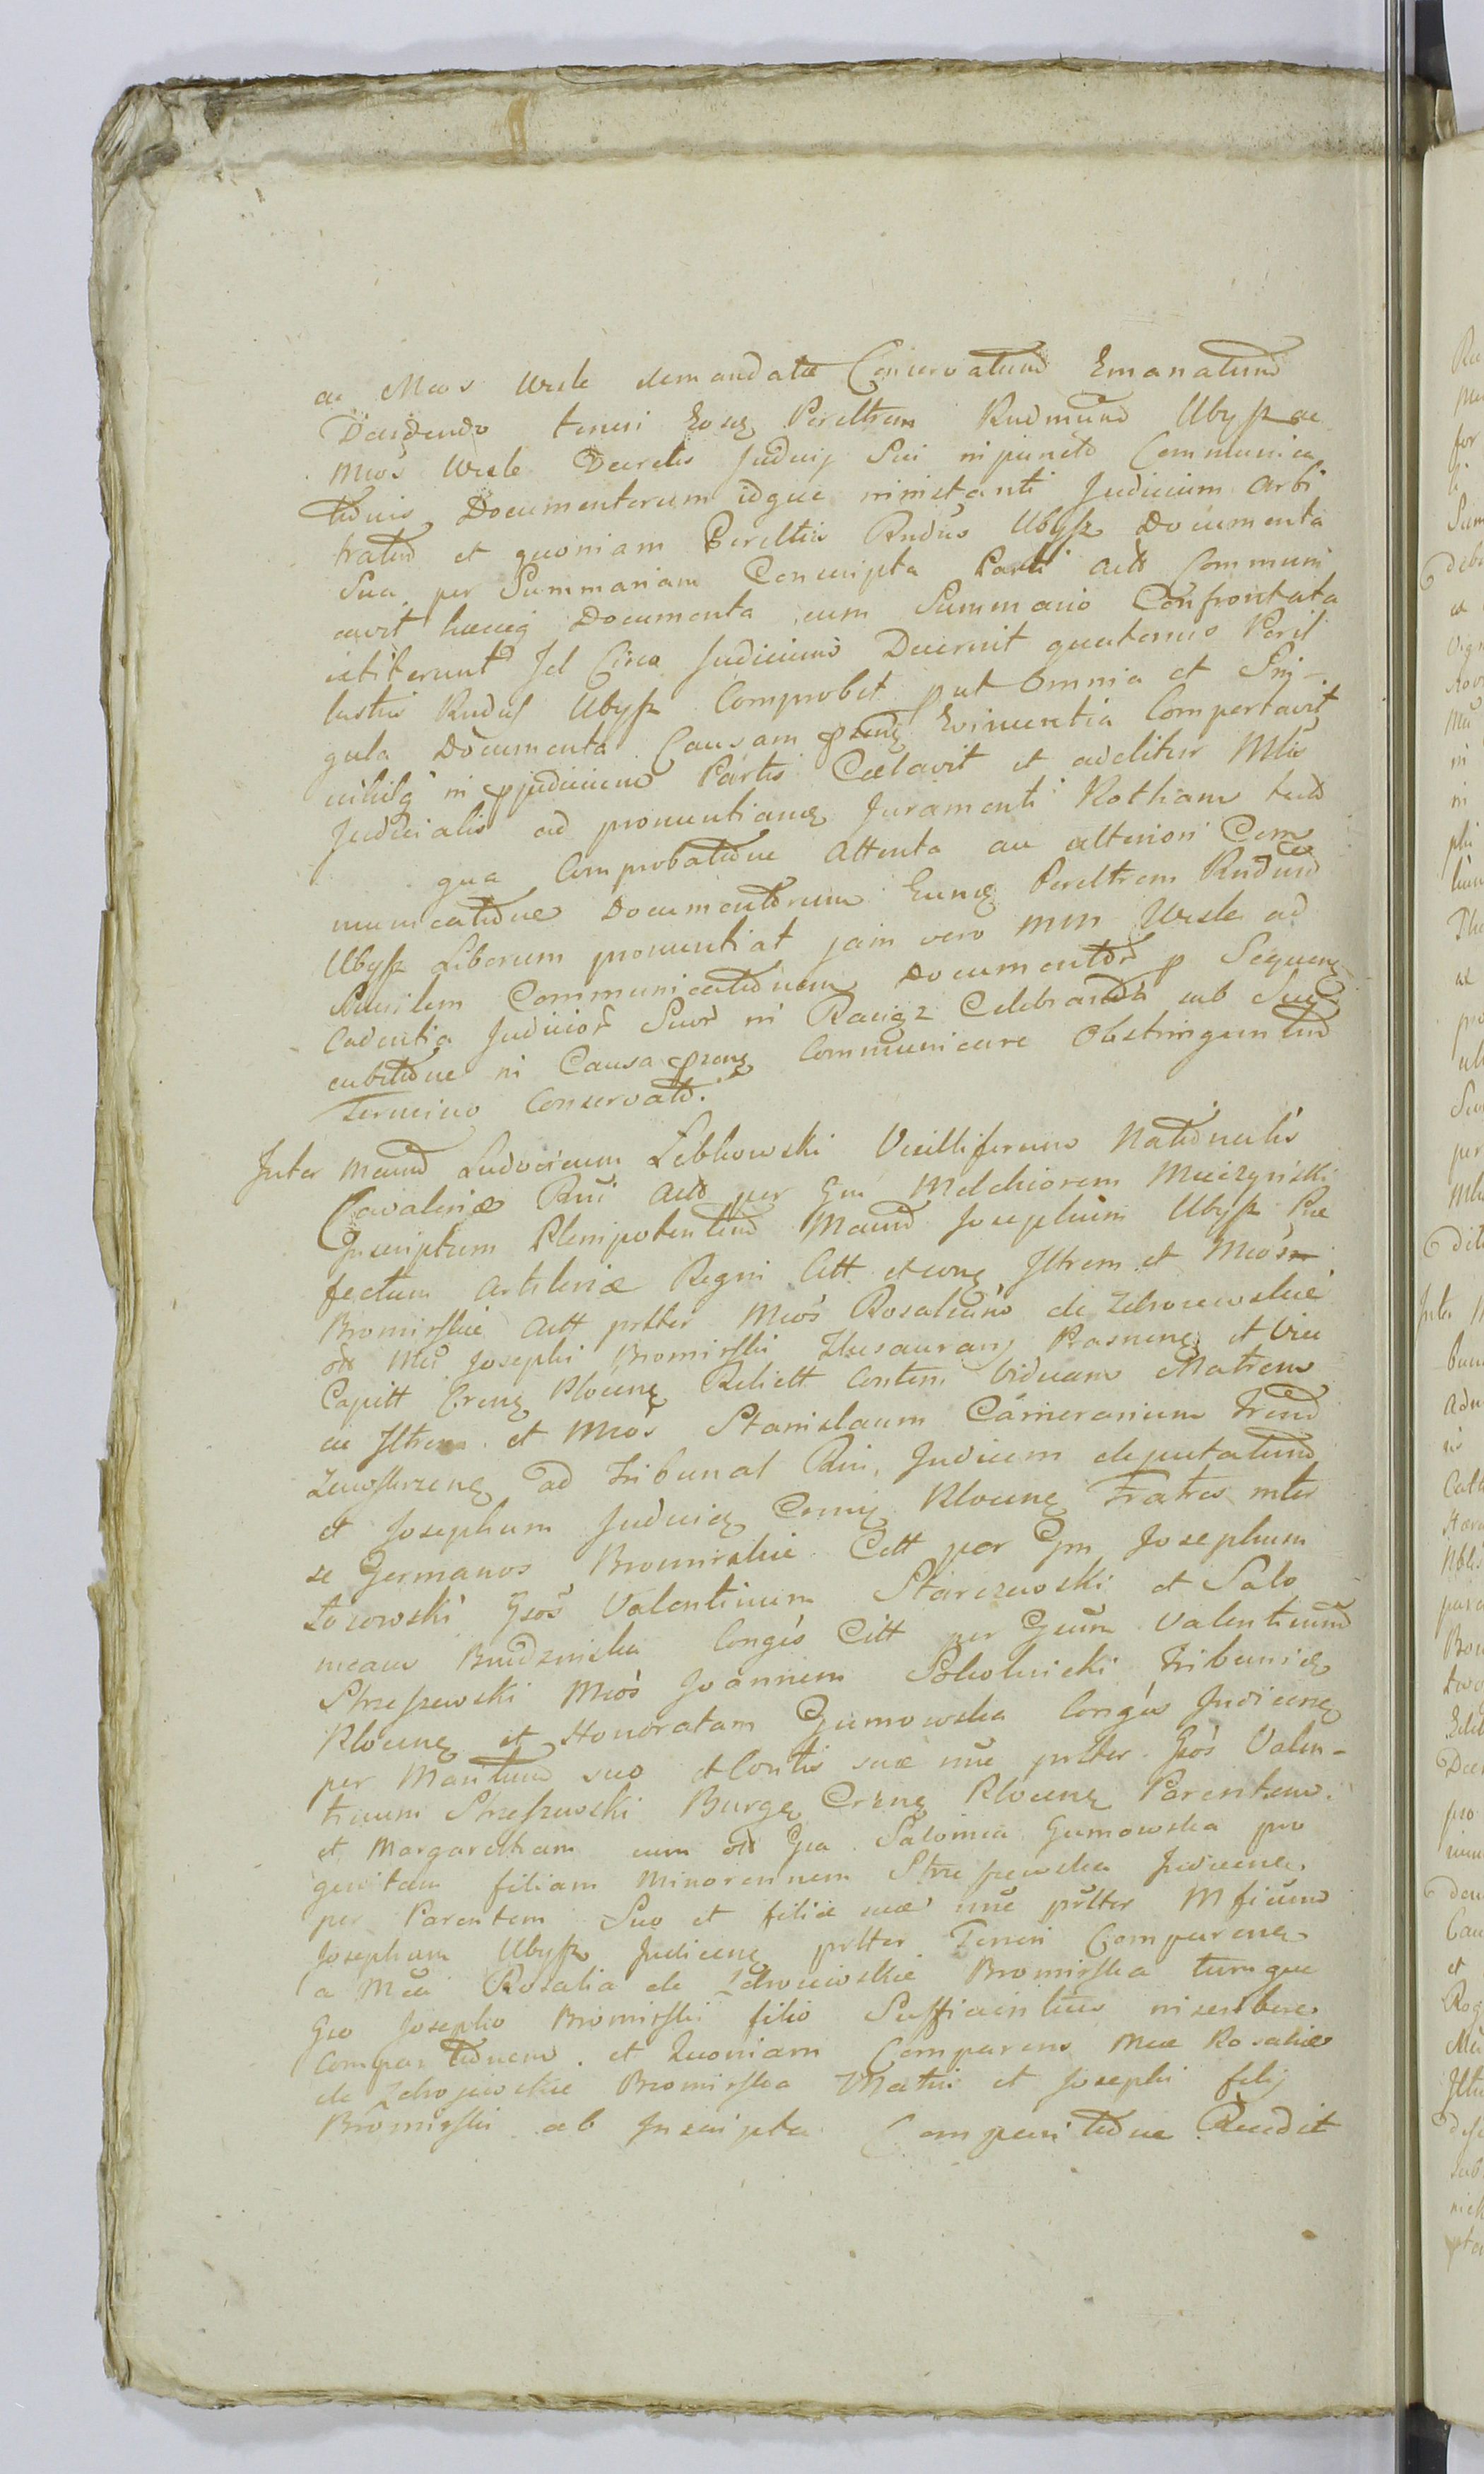 ac Mcos Wesle demandatae Conservatum Emanatum
Decidendo teneri Eosq Perelltrem Rudmum Ubysz ac
Mcos Wesle Decretis Judicij Sui in puncto Communica
tionis Documentorum idque ninstanti Judicium Arbi
tratum et quoniam Perelltris Rudus Ubysz Documenta
Sua per Summariam Conscripta Parti Act Communi
cavit haecq Documenta cum Summario Confrontata
extiterunt Id Circo Judicium Decernit quatenus Peril
lustris Rudus Ubysz Comprobet put Omnia et Sin-
gula Documenta Causam pntem Evincentia Comportavit
nihilq in pjudicium Partis Caelavit et additur Mtis
Judicialis ad pronuntiang Juramenti Rotham
qua Comprobatione Attenta ac ulteriori Com
municatione Documentorum Eunq Perelltrem Rudum
Ubysz Liberum pronuntiat jam vero Wesle ad
Similem Communicationem Documentor p Sequen
Cadentia Judicior Suor in Raciąz Celebranda sub Suc
cubitione in Causa pnte Communicare Obstringuntur
Termino Conservato.
Inter Ludovicum Lebkowski Vexilliferum Nationalis
Cavaleriae Rni Act per Gm Melchiorem Muczyński
Inscriptum Plenipotentem Josephum Ubysz Prae
fectum Artileriae Regni Citt Iltrem et Mcos
Bromirskie Citt pntter Mcos Rosaliam de Zdroiewskie
Mci Josephi Bromirski Thesaurarij Rasnen et Vice
Capitt Cren Plocen Relictt Contem Viduam Matrem
ac Iltrem et Mcos Stanislaum Camerarium
Zawskrzen ad Tribunal Rni Judicem deputatum
et Josephum Judicem Plocen Fratres inter
se Germanos Bromirskie Citt per Gm Josephum
Łozowski Gsos Valentinum Starczewski et Salo
meam Budzinska Conges Citt per Gnum Valentinum
Strzeszewski Mcos Joannem Sokolnicki Tribunid
Plocen et Honoratam Gumowska Conges Judicen
per Maritum suo et Contis suae nne pntter Gsos Valen-
tinum Strzeszewski Burg Cren Plocen Parentem
et Margaretham cum Gsa Salomea Gumowska pro
genitam filiam Minorennem Strzeszewska Judicen
per Parentem Suo et filiae suae nne pntter Mficum
Josephum Ubysz Judicen pntter Teneri Comparen
a Mca Rosalia de Zdroiewskie Bromirska tumque
Gso Josepho Bromirski filio Sufficientem inscribere
Comparitionem et Quoniam Comparens Mcae Rosaliae
de Zdrojewskie Bromirska Matris et Josephi filij
Bromirski ab Inscripta Comparitione Recedit